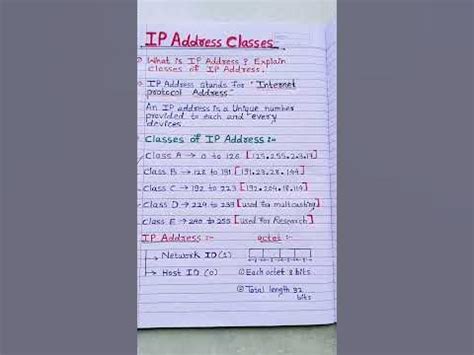 IP Address Classes
What is IP Address? Explain
classes of IP Address.
IP Address stands for "Internet
protocol Address"
An IP address is a Unique number
provided to each and every
devices.
Classes of IP Address:-
Class A → 0 to 126 [125.255.2.3.14]
Class B → 128 to 191 [191.23.28.144]
Class C → 192 to 223 [192.204.18.114]
Class D → 224 to 239 [used for multicasting]
Class E → 240 to 255 [used for Research]
IP Address :- octet :-
→ Network ID (1)
→ Host ID (0) ① Each octet 8 bits
② Total length 32
bits